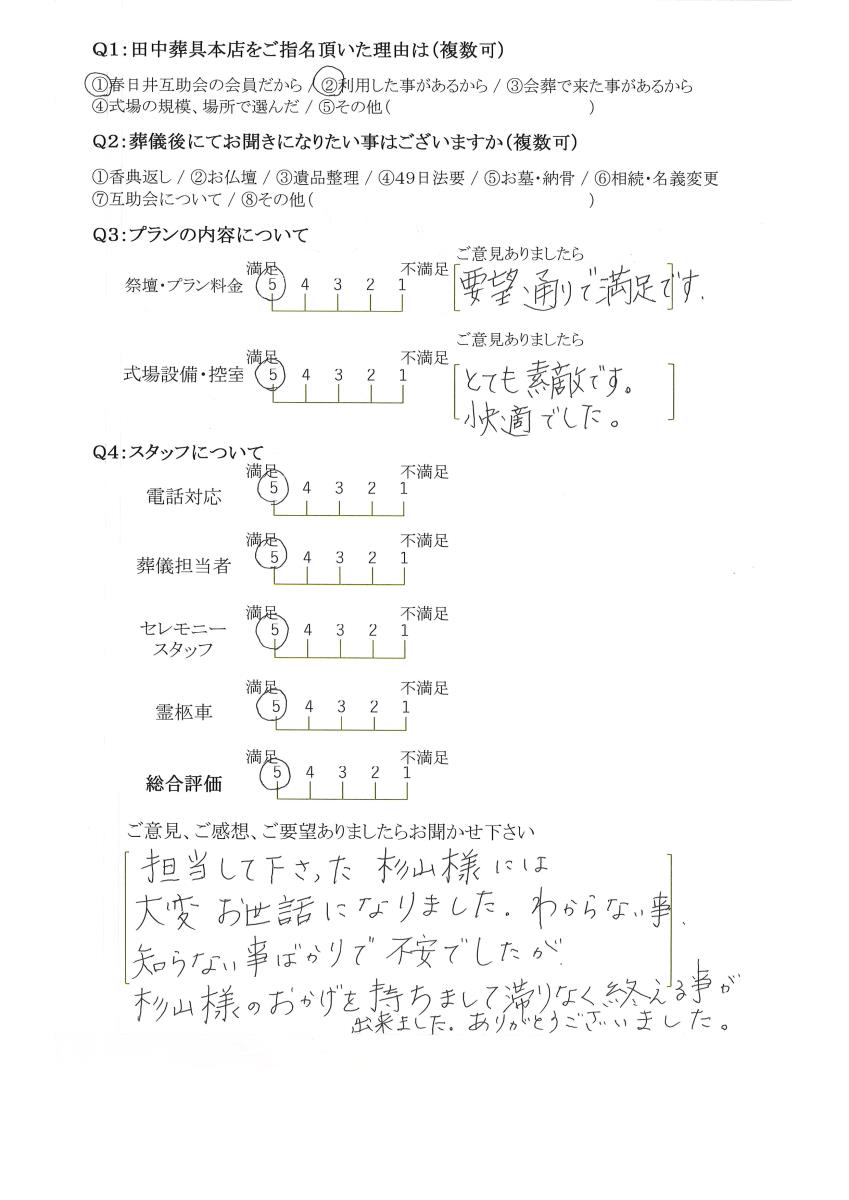 Q1：田中葬具本店をご指名頂いた理由は（複数可）
①春日井互助会の会員だから / ②利用した事があるから / ③会葬で来た事があるから
④式場の規模、場所で選んだ / ⑤その他（　　　　　　　　　　　　）
Q2：葬儀後にてお聞きになりたい事はございますか（複数可）
①香典返し / ②お仏壇 / ③遺品整理 / ④49日法要 / ⑤お墓・納骨 / ⑥相続・名義変更
⑦互助会について / ⑧その他（　　　　　　　　　　　　　　　　　）
Q3：プランの内容について
ご意見ありましたら
満足 不満足
祭壇・プラン料金 5 4 3 2 1
要望通りで満足です.
ご意見ありましたら
満足 不満足
式場設備・控室 5 4 3 2 1
とても素敵です。
快適でした。
Q4：スタッフについて
満足 不満足
電話対応 5 4 3 2 1
満足 不満足
葬儀担当者 5 4 3 2 1
満足 不満足
セレモニー
スタッフ 5 4 3 2 1
満足 不満足
霊柩車 5 4 3 2 1
満足 不満足
総合評価 5 4 3 2 1
ご意見、ご感想、ご要望ありましたらお聞かせ下さい
担当して下さった 杉山様には
大変 お世話になりました. わからない事.
知らない事ばかりで 不安でしたが.
杉山様のおかげを持ちまして滞りなく終える事が
出来ました. ありがとうございました。